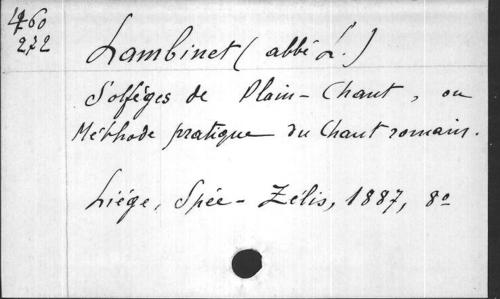 4260
272
Lambinet (abbé L.)
Solfèges de Plain-Chant, ou
Méthode pratique du Chant romain.
Liége, Spée-Zélis, 1887, 8o